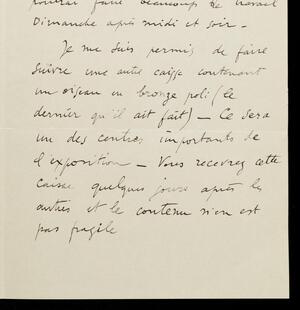 pourrai faire beaucoup de travail
Dimanche après midi et soir –
Je me suis permis de faire
suivre une autre caisse contenant
un oiseau en bronze poli (le
dernier qu'il ait fait) – Ce sera
un des centres importants de
l'exposition – Vous recevrez cette
caisse quelques jours après les
autres et le contenu n'en est
pas fragile